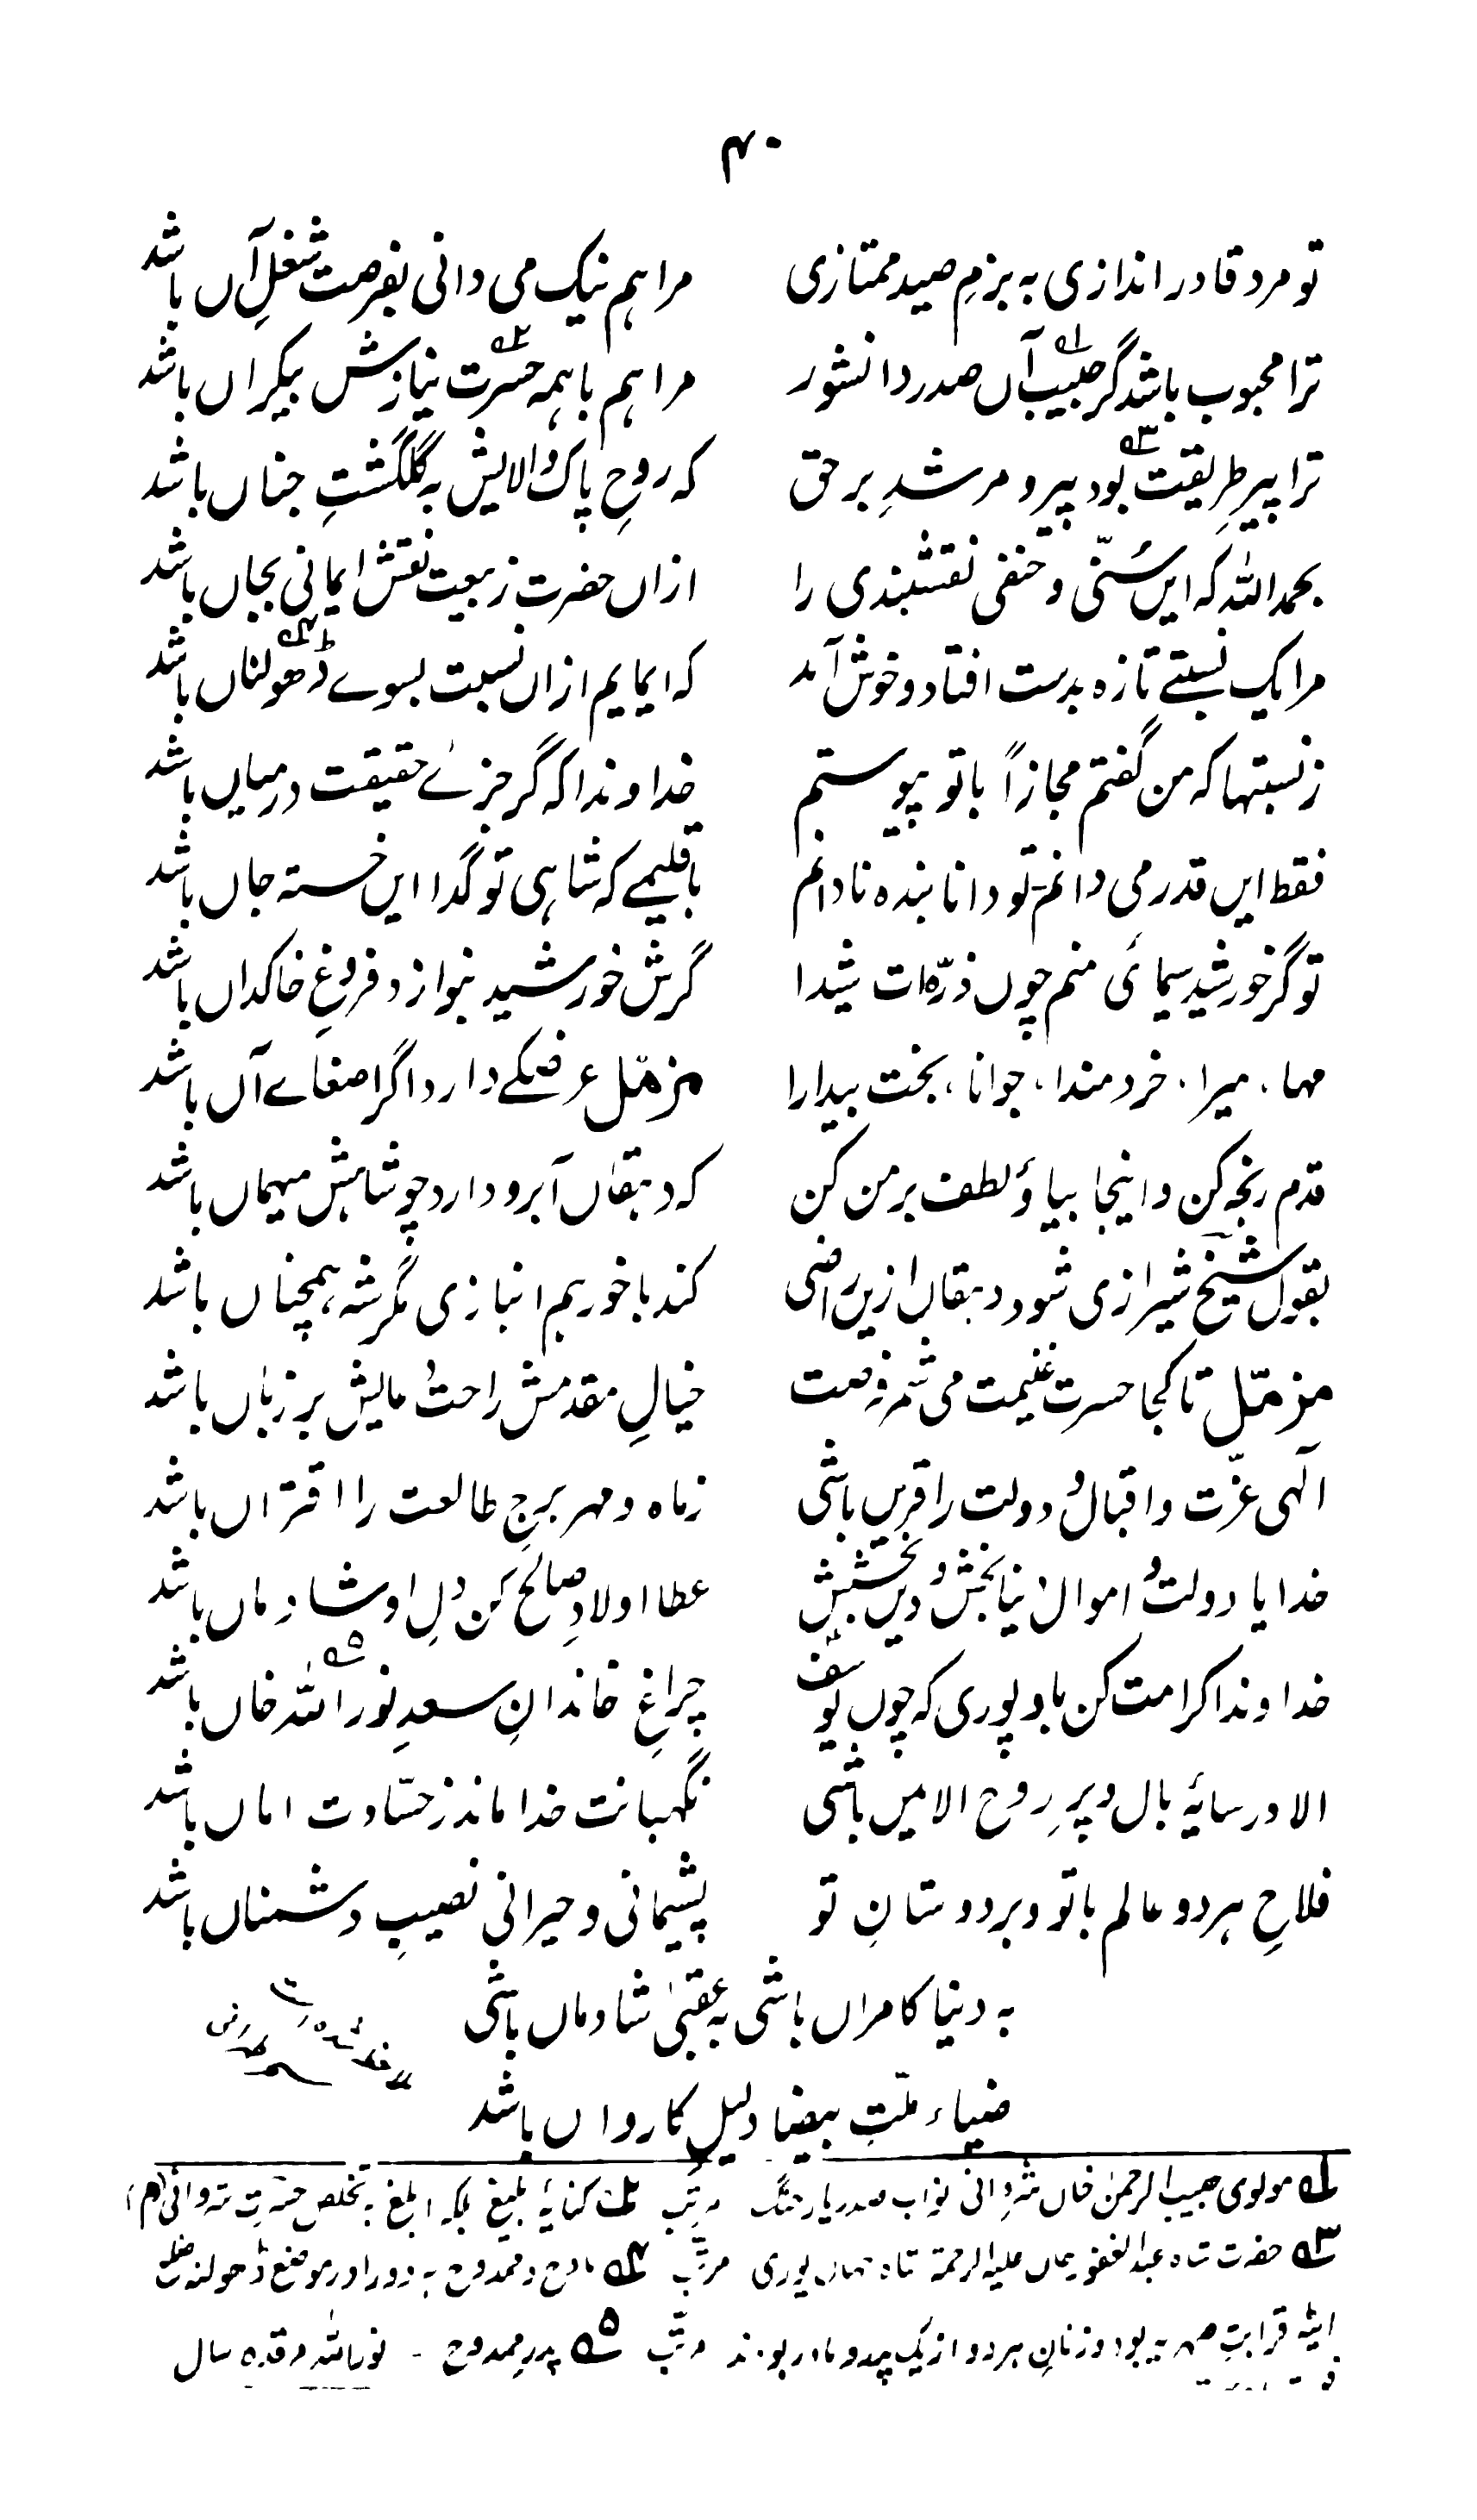 ۴۰
تو مرد قادر اندازی به بزمِ صید ممتازی مرا هم نیک می دانی بفرصت شغلِ آں باشد
ترا محبوب باشد گر حبیب۱ آں صدر دانشور مرا هم با همہ حسرت۲ نیازش بیکراں باشد
ترا پیرِ طریقت۳ بود پیر و مرشدِ برحق کہ روحِ پاک والایش بہ گلگشتِ جناں باشد
بحمد اللہ کہ ایں سُنّی و حنفی نقشبندی را ازاں حضرت ز بیعت نقش ایمانی بجاں باشد
مرا یک نسبتے تازہ بدست افتاد و خوش آمد کہ ایمایم ازاں نسبت بسوے ڈھولناں۴ باشد
ز نسبتہا کہ من گفتم مجازاً با تو پیوستم خداوندا کہ گر جزئے حقیقت درمیاں باشد
فقط ایں قدر می دانم تو دانا بندہ نادانم باقلیمے کہ شاہی تو گدا ایں خستہ جاں باشد
تو گر خورشید سیمائی منم چوں ذرّہ ات شیدا گرش خورشید بنوازد فروغِ خاکداں باشد
مہا، میرا، خردمندا، جوانا، بخت بیدارا مزمّل عرضکے دارد اگر اصغاے آں باشد
قدم رنجہ کن و اینجا بیا و لطف بر من کن کہ دہقاں آبرو دارد چو شاہش میہماں باشد
بقول شیخ شیرازی شود دہقاں ازیں راضی کند با خور ہم انبازی مگر شہ، ہمچناں باشد
مزمّل تا کجا حسرت غنیمت می شمر فرصت خیالِ مقدمش راحت دعایش بر زباں باشد
الٰہی عزّت و اقبال و دولت را قریں باشی ز ماہ و مہر برجِ طالعت را اقتراں باشد
خدایا دولت و اموال دنیا بخش و دیں بخشش عطا اولادِ صالح کن دلِ او شادماں باشد
خداوندا کرامت کن باو پوری کہ چوں یوسف چراغِ خاندانِ سعدِ نور اللہ خاں۵ باشد
الا در سایۂ بال و پرِ روح الامیں باشی نگہبانت خدا ماند ز حسّادت اماں باشد
فلاحِ ہر دو عالم با تو و بر دوستانِ تو پشیمانی و حیرانی نصیبِ دشمناں باشد
بہ دنیا کامراں باشی بہ عقبیٰ شادماں باشی
ضیاء ملّتِ بیضا دلیل کارواں باشد
۱ مولوی حبیب الرحمن خاں شروانی نواب صدر یار جنگ مرتّب ۲ کنایۂ بلیغ بلکہ ابلغ بہ تخلص حسرت شروانی (م)
۳ حضرت شاہ عبد الغفور خاں علیہ الرحمۃ شاہ جہان پوری مرتّب ۴ مادح و ممدوح بہ زور اور موضع ڈھولنہ ضلع
ایٹہ قرابتِ صہریہ بود و زنانِ ہر دو از یک پدر و مادر بودند مرتّب ۵ پدرِ ممدوح - نور اللہ مرقدہ سال